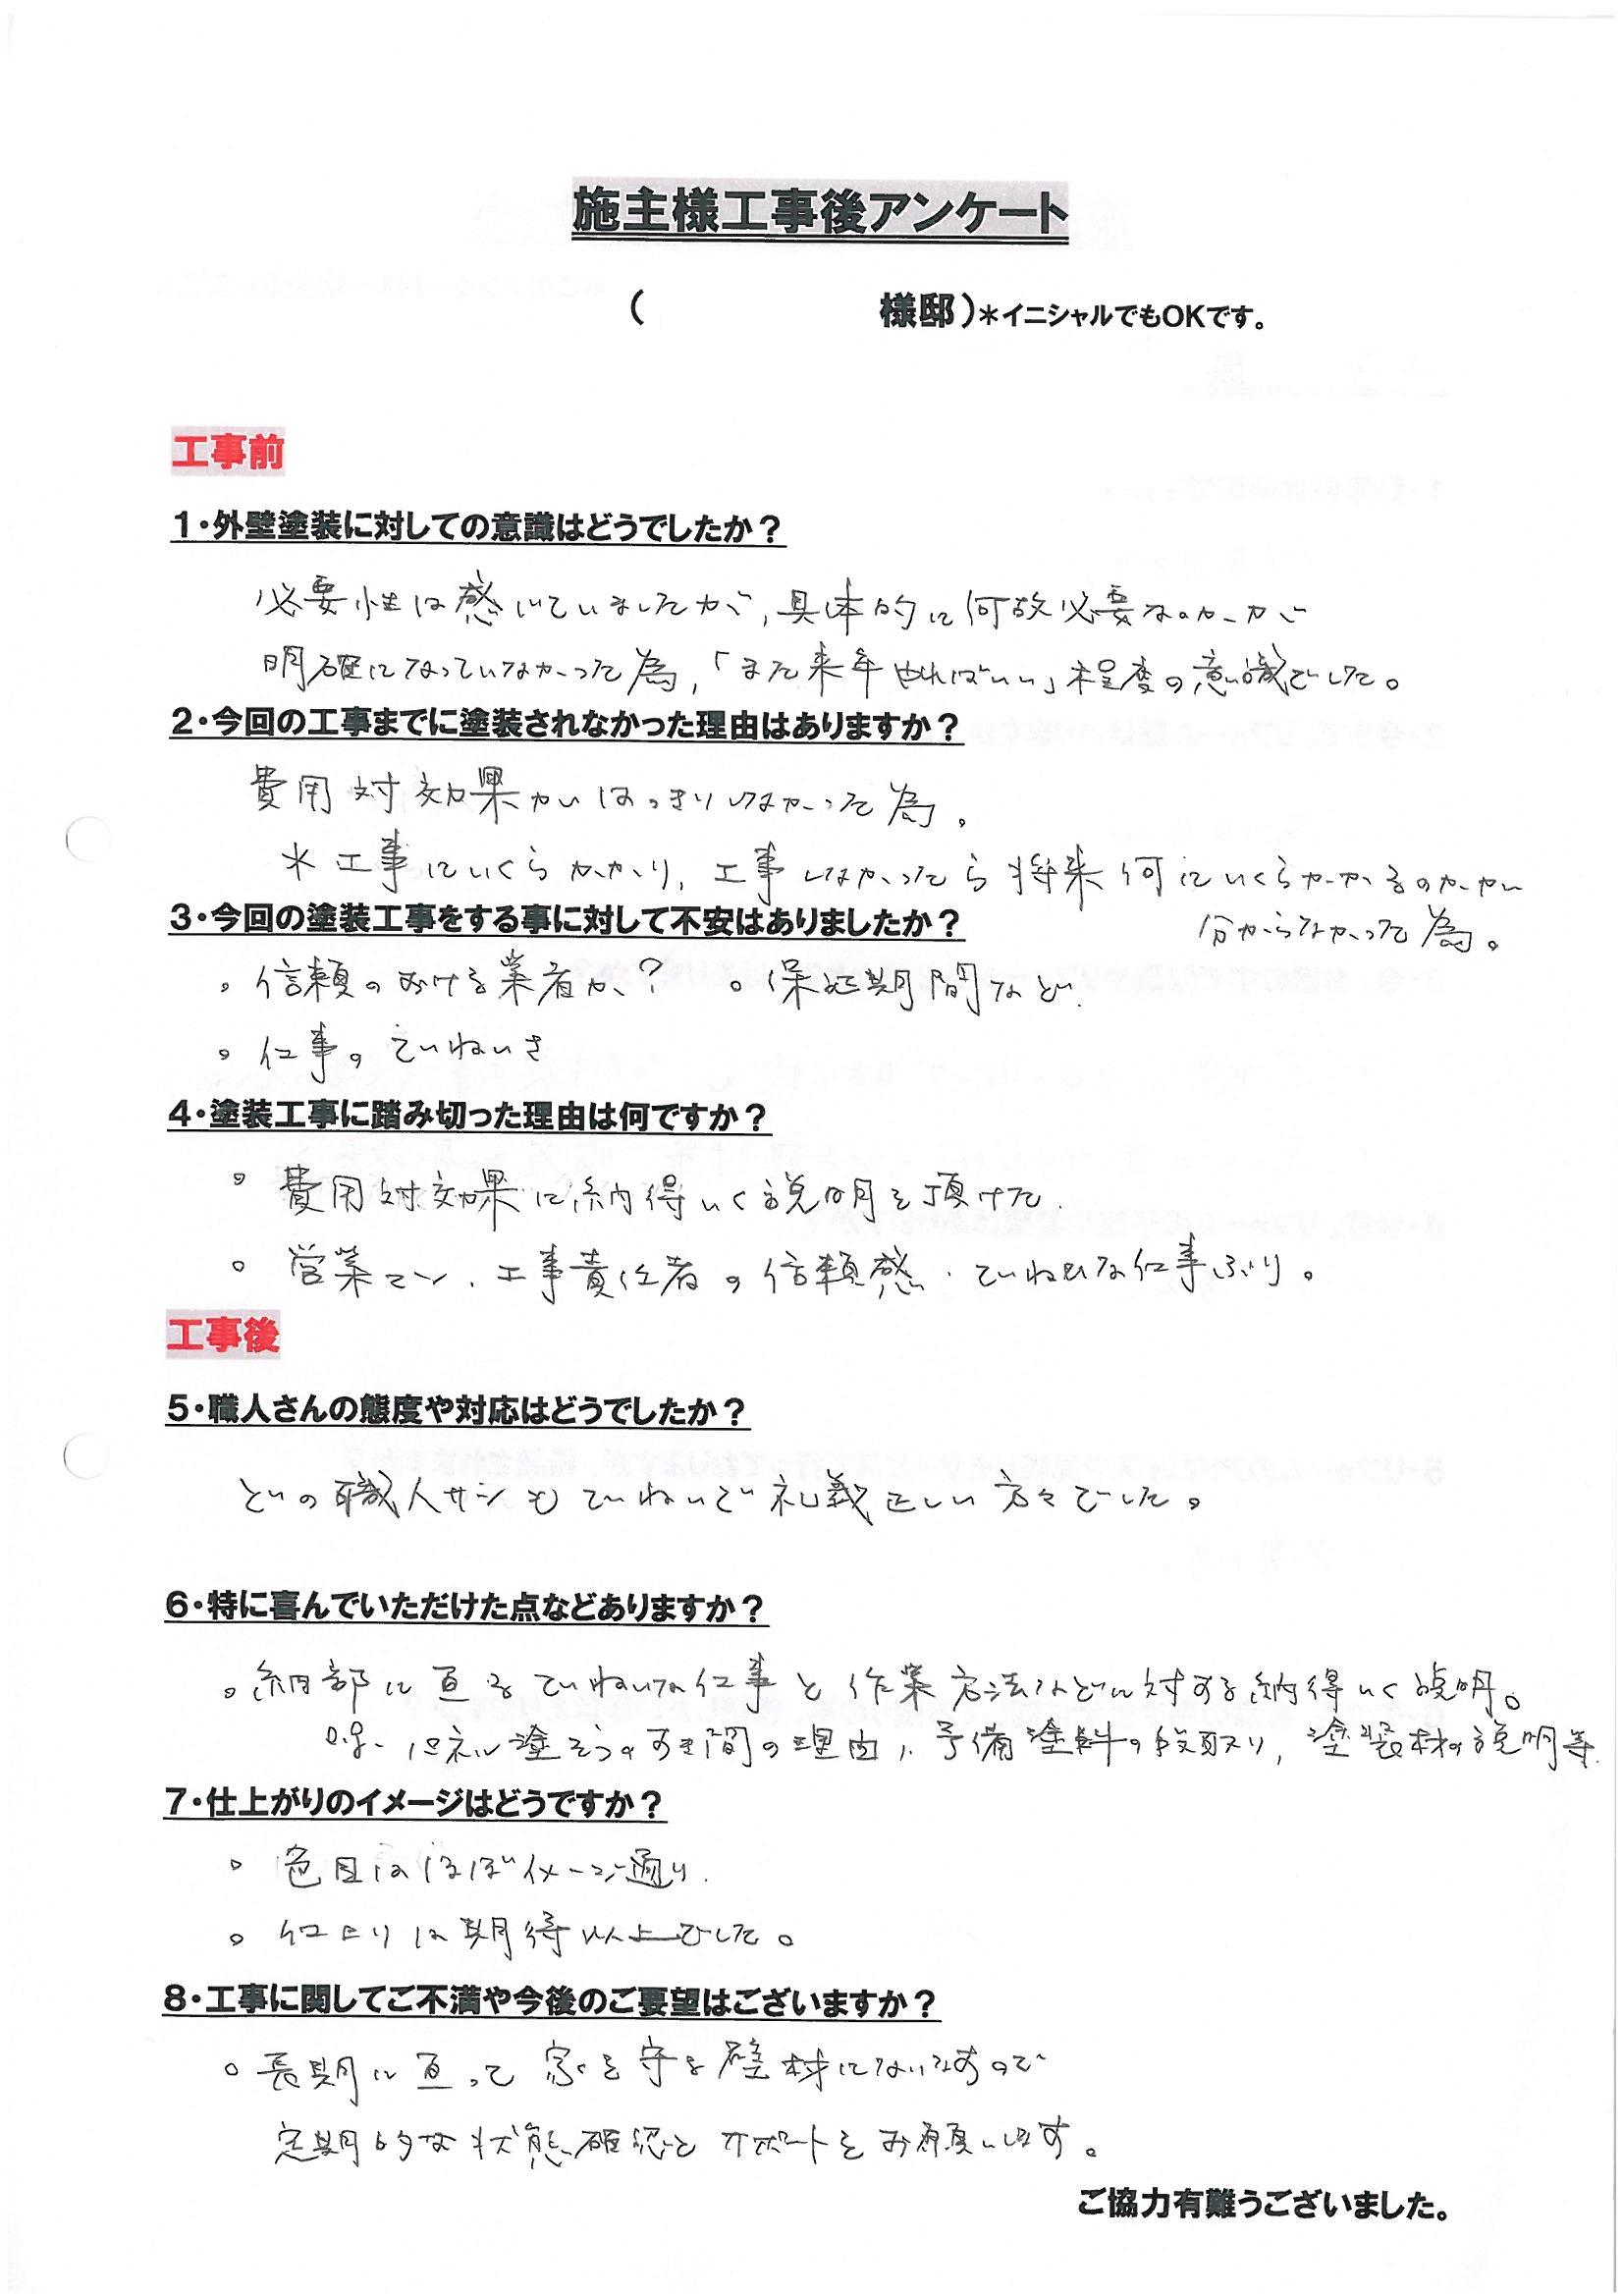 施主様工事後アンケート
(　　　　　　様邸)＊イニシャルでもOKです。
工事前
1・外壁塗装に対しての意識はどうでしたか？
必要性は感じていましたが、具体的に何故必要なのかが
明確になっていなかった為、「また来年やればいい」程度の意識でした。
2・今回の工事までに塗装されなかった理由はありますか？
費用対効果がはっきりしなかった為。
＊工事にいくらかかり、工事しなかったら将来何にいくらかかるのかが
分からなかった為。
3・今回の塗装工事をする事に対して不安はありましたか？
。信頼のおける業者か？　。保証期間など.
。仕事のていねいさ
4・塗装工事に踏み切った理由は何ですか？
。費用対効果に納得いく説明を頂けた.
。営業マン、工事責任者の信頼感・ていねいな仕事ぶり。
工事後
5・職人さんの態度や対応はどうでしたか？
どの職人サンもていねいで礼義正しい方々でした。
6・特に喜んでいただけた点などありますか？
。細部に亘るていねいな仕事と作業方法などに対する納得いく説明。
e.g. パネル塗そうのすき間の理由、予備塗料の段取り、塗装材の説明等.
7・仕上がりのイメージはどうですか？
。色目はほぼイメージ通り.
。仕上りは期待以上でした。
8・工事に関してご不満や今後のご要望はございますか？
。長期に亘って家を守る壁材に
定期的な状態確認とサポートをお願いします。
ご協力有難うございました。